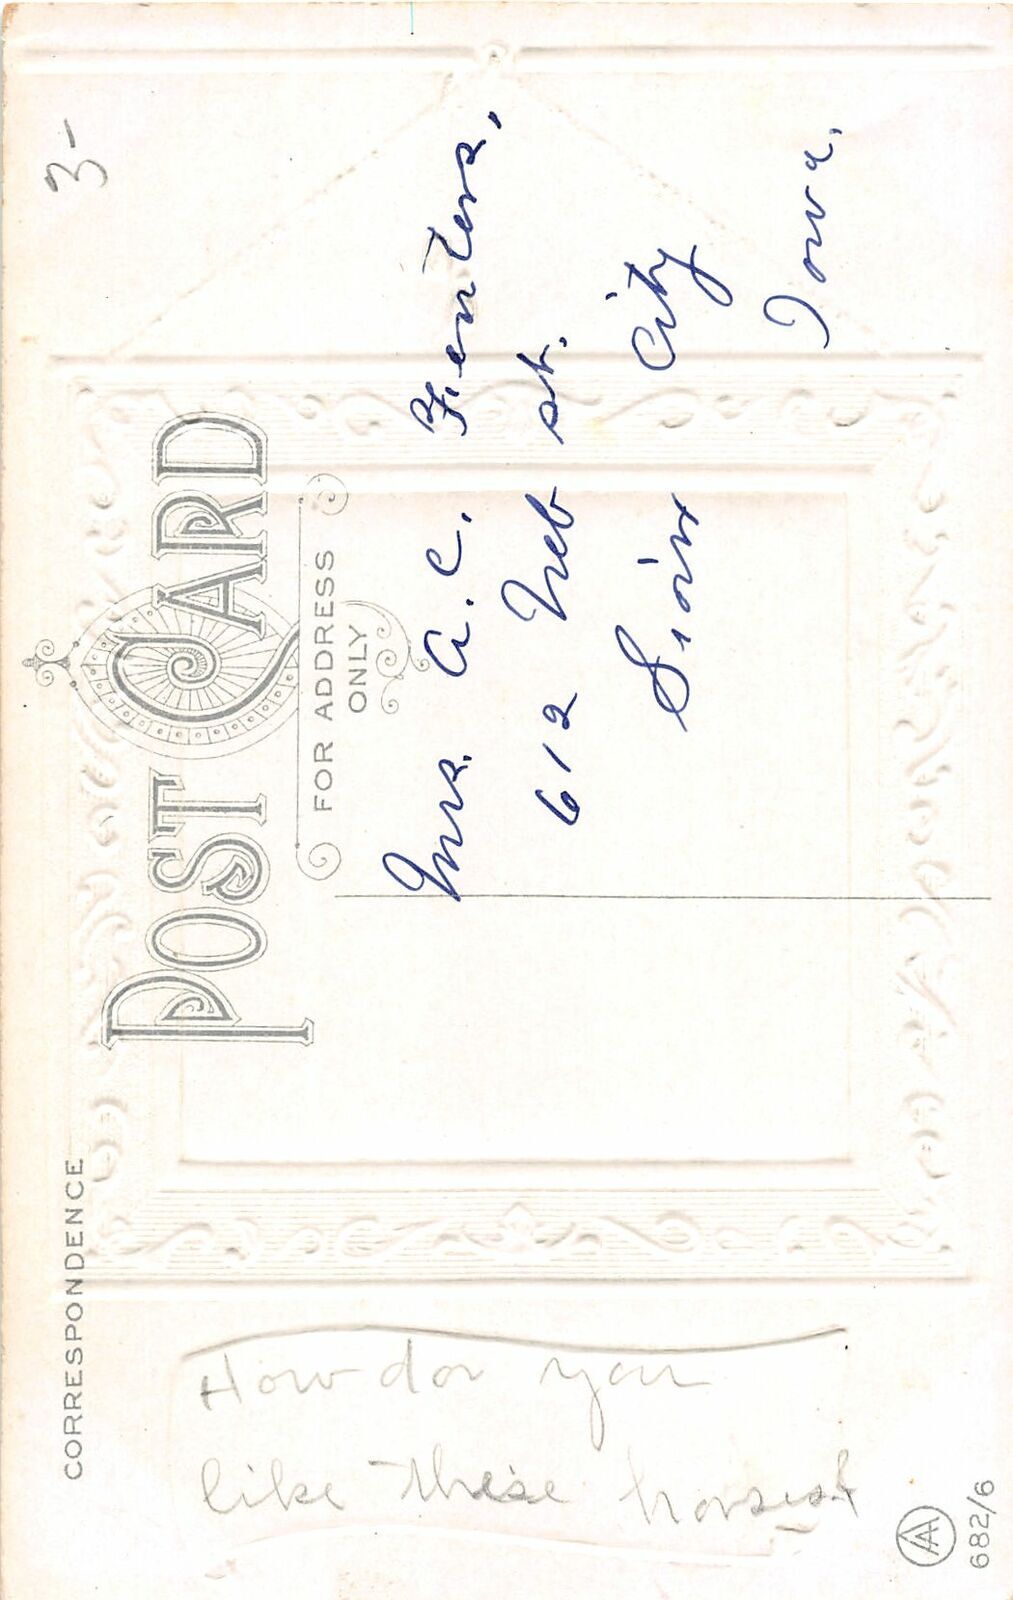 3-
POST CARD
CORRESPONDENCE
FOR ADDRESS
ONLY
Mrs. A. C. Fenters,
612 Neb st.
Sioux City
Iowa.
How do you
like these horses
AA
682/6